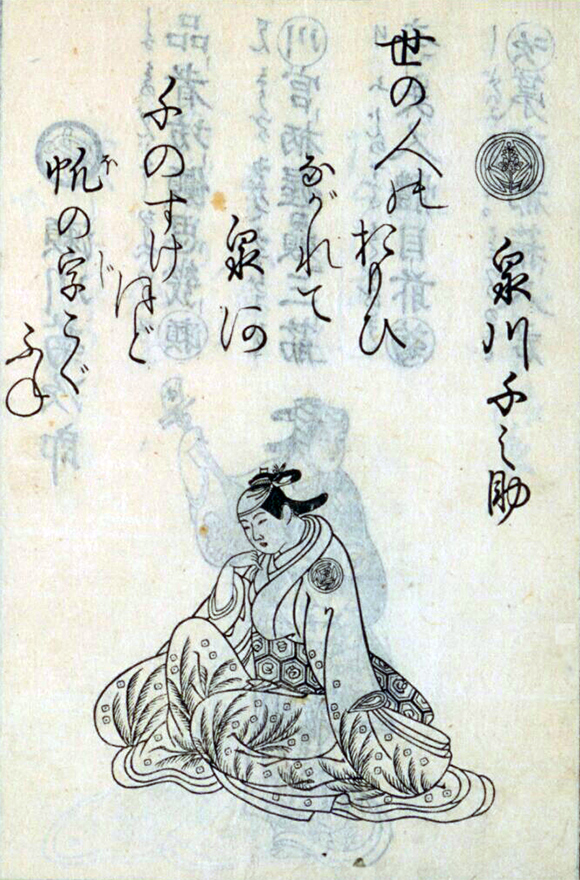 泉川千之助
世の人の
おもひ
ながれて
泉河
千のすけ
ほど
帆の字こぐ
ふね